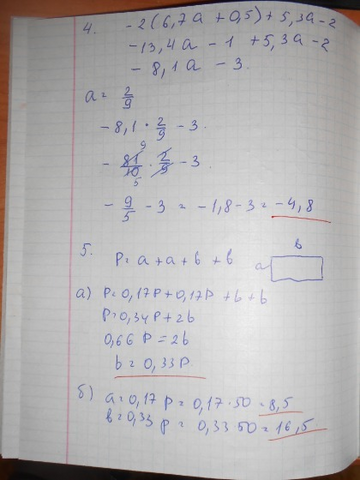 4. -2(6,7a + 0,5) + 5,3a - 2
-13,4a - 1 + 5,3a - 2
- 8,1a - 3.
a = 2/9
- 8,1 · 2/9 - 3.
- 81/10 · 2/9 - 3
9
5
- 9/5 - 3 = -1,8 - 3 = -4,8
5. P = a + a + b + b
b
a
а) P = 0,17P + 0,17P + b + b
P = 0,34P + 2b
0,66P = 2b
b = 0,33P
б) a = 0,17P = 0,17 · 50 = 8,5
b = 0,33P = 0,33 50 = 16,5